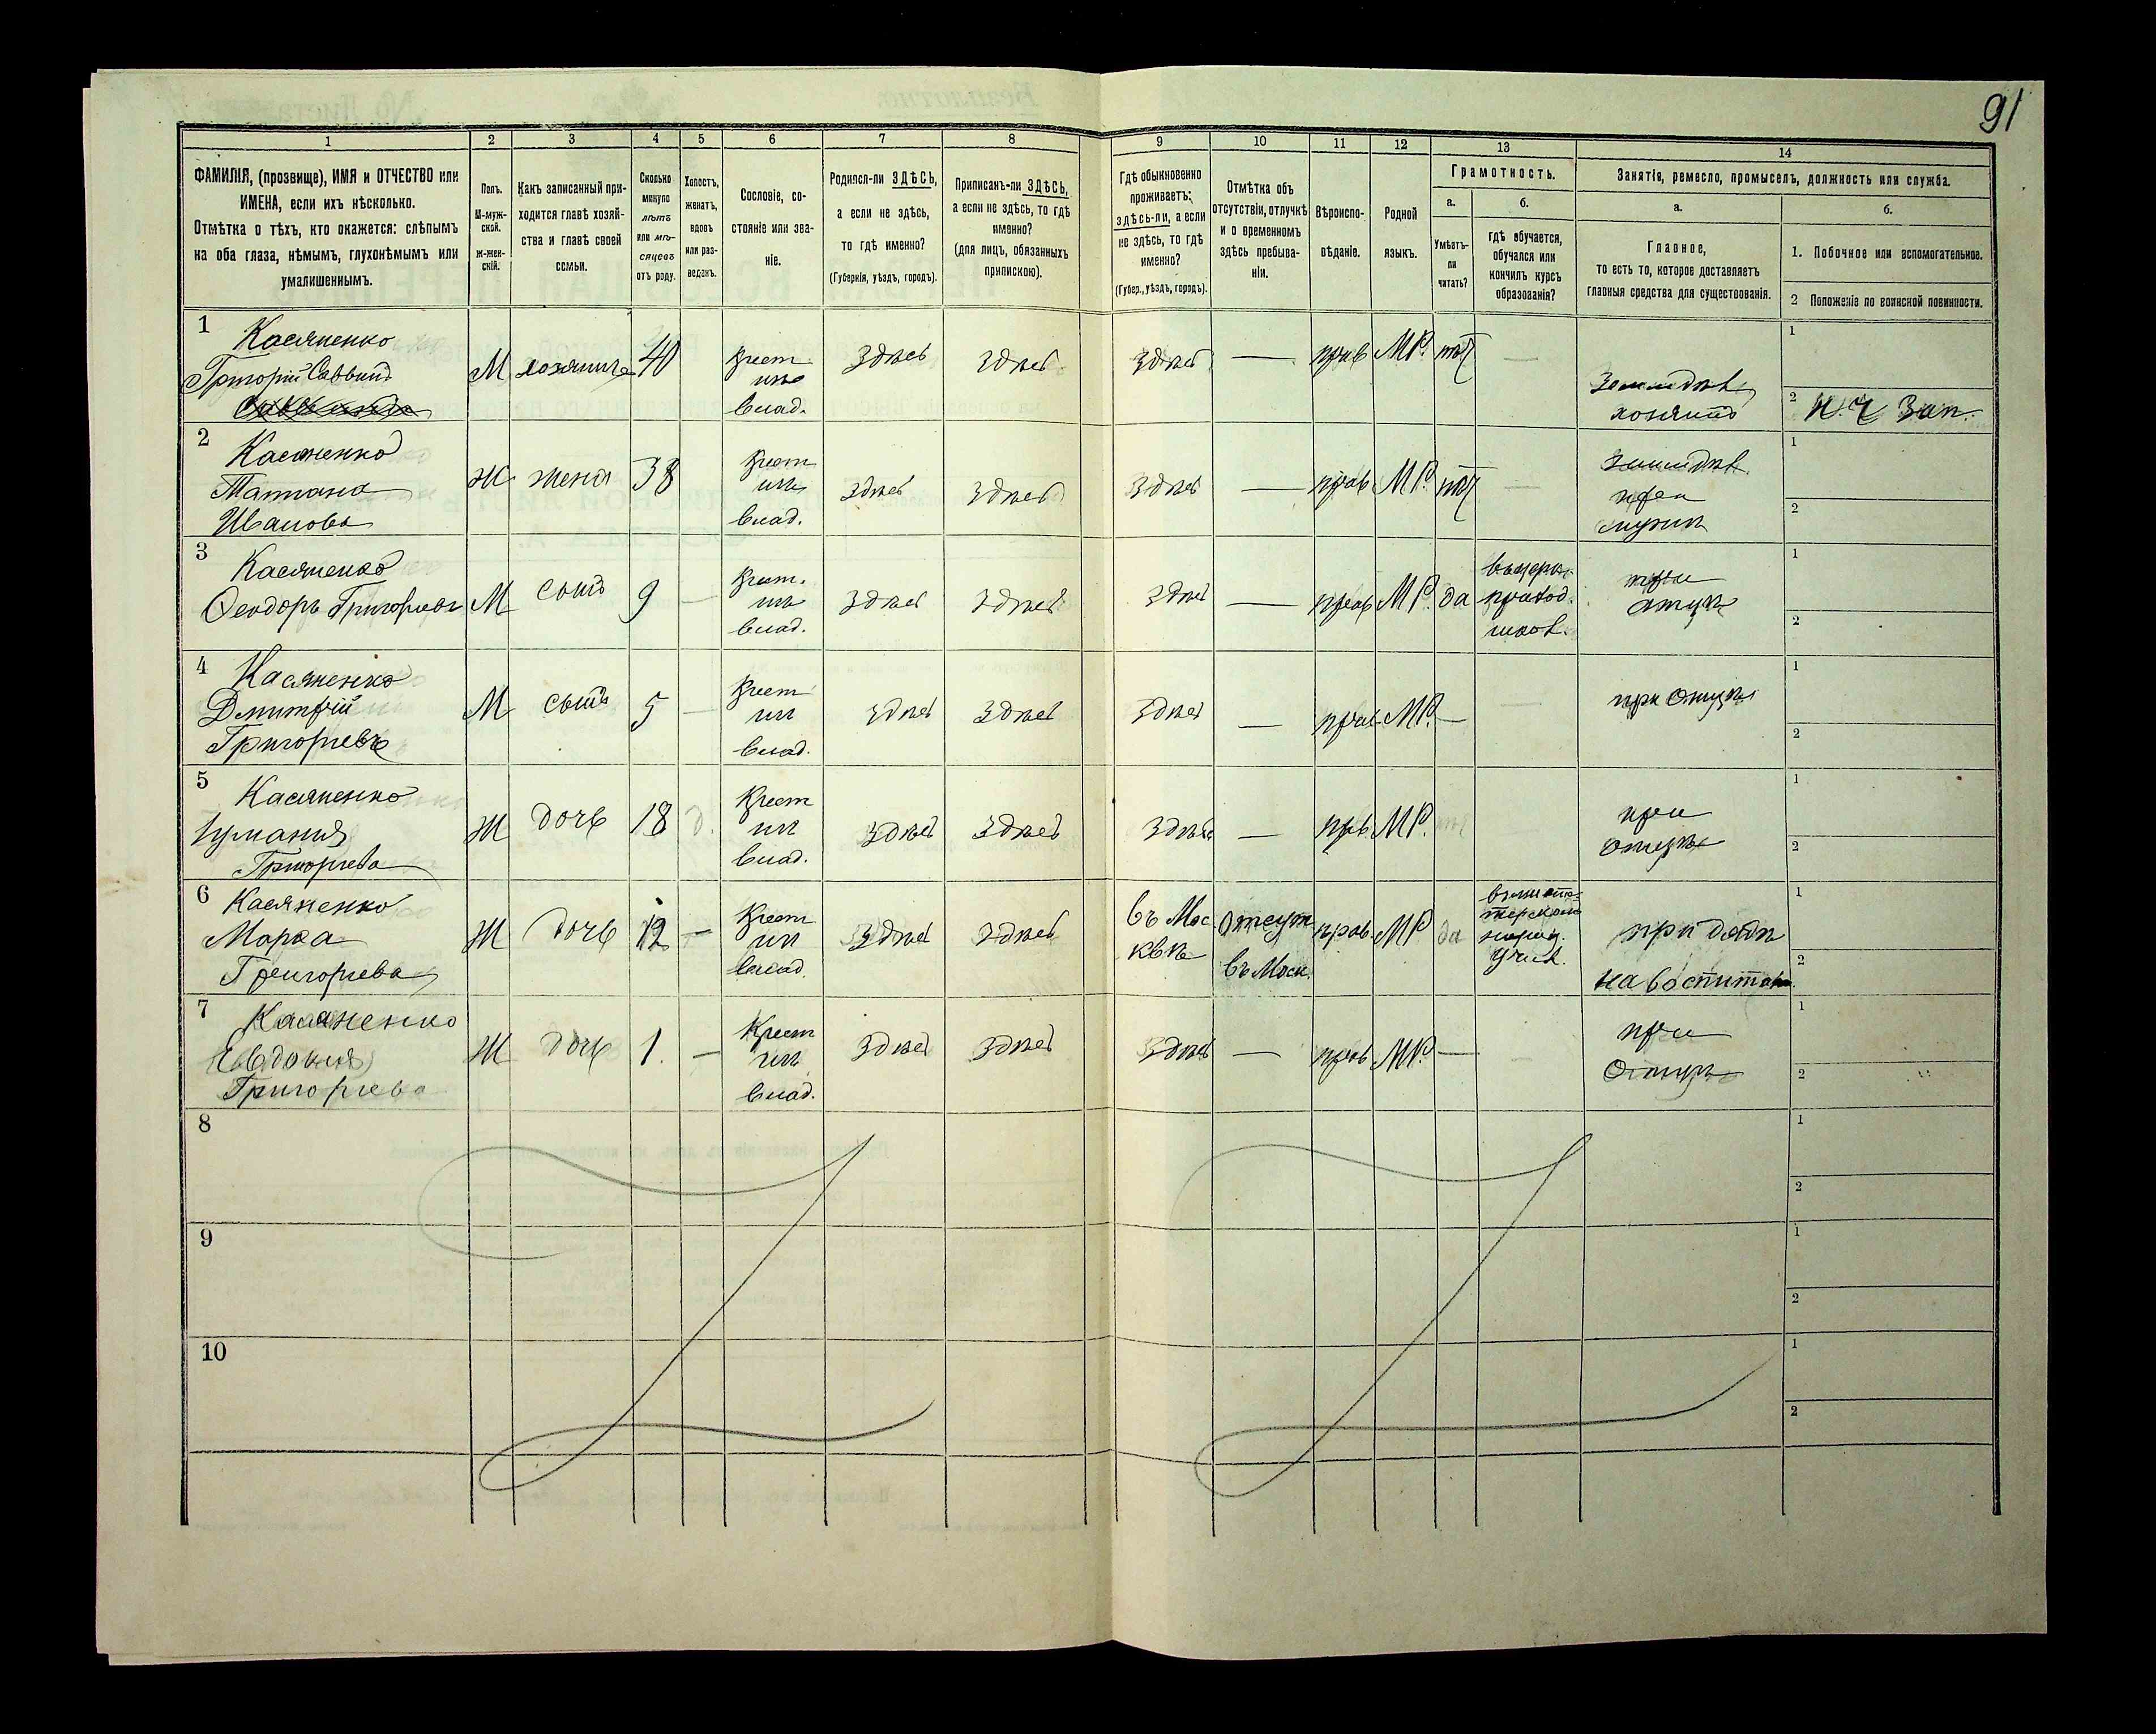 91
1 2 3 4 5 6 7 8 9 10 11 12 13 14
ФАМИЛІЯ, (прозвище), ИМЯ и ОТЧЕСТВО или
ИМЕНА, если ихъ нѣсколько.
Отмѣтка о тѣхъ, кто окажется: слѣпымъ
на оба глаза, нѣмымъ, глухонѣмымъ или
умалишеннымъ.
Полъ.
М-муж-
ской.
Ж-жен-
скій.
Какъ записанный при-
ходится главѣ хозяй-
ства и главѣ своей
семьи.
Сколько
минуло
лѣтъ
или мѣ-
сяцевъ
отъ роду.
Холостъ,
женатъ,
вдовъ
или раз-
веденъ.
Сословіе, со-
стояніе или зва-
ніе.
Родился-ли ЗДѢСЬ,
а если не здѣсь,
то гдѣ именно?
(Губернія, уѣздъ, городъ).
Приписанъ-ли ЗДѢСЬ,
а если не здѣсь, то гдѣ
именно?
(для лицъ, обязанныхъ
припискою).
Гдѣ обыкновенно
проживаетъ:
здѣсь-ли, а если
не здѣсь, то гдѣ
именно?
(Губер., уѣздъ, городъ).
Отмѣтка объ
отсутствіи, отлучкѣ
и о временномъ
здѣсь пребыва-
ніи.
Вѣроиспо-
вѣданіе.
Родной
языкъ.
Грамотность.
а.
Умѣетъ-
ли
читать?
б.
гдѣ обучается,
обучался или
кончилъ курсъ
образованія?
Занятія, ремесло, промыселъ, должность или служба.
а.
Главное,
то есть то, которое доставляетъ
главныя средства для существованія.
б.
1. Побочное или вспомогательное.
2 Положеніе по воинской повинности.
1
Касяненко
Григорій Саввинъ
М хозяинъ 40
Крест
инъ
влад.
здѣсь здѣсь здѣсь — прав МР. нѣт —
Земледѣл
хозяинъ
1
2 н. ч Зап.
2
Касяненко
Татiана
Иванова
Ж жена 38
Крест
инъ
влад.
здѣсь здѣсь здѣсь — прав МР. нѣт —
Земледѣл.
при
мужѣ
1
2
3
Касяненко
Ѳеодоръ Григорьевъ
М сынъ 9 —
Крест.
инъ
влад.
здѣсь здѣсь здѣсь — прав МР. да
въ церк.
приход.
школ.
при
отцѣ
1
2
4
Касяненко
Дмитрій
Григорьевъ
М сынъ 5 —
Крест
ин
влад.
здѣсь здѣсь здѣсь — прав МР. — —
при Отцѣ
1
2
5
Касяненко
Григорьева
Ж дочь 18 д.
Крест
ин
влад.
здѣсь здѣсь здѣсь — прав МР. нѣт
при
отцѣ
1
2
6
Касяненко
Марѳа
Григорьева
Ж дочь 12 —
Крест
ин
влад.
здѣсь здѣсь
въ Мос
квѣ
Отсут
въ Моск.
прав. МР да
народ.
учил.
на воспитан.
1
2
7
Касяненко
Евдокия
Григорьева
Ж дочь 1. —
Крест
ин
влад.
здѣсь здѣсь здѣсь — прав МР. — —
при
Отцѣ
1
2
8
1
2
9
1
2
10
1
2